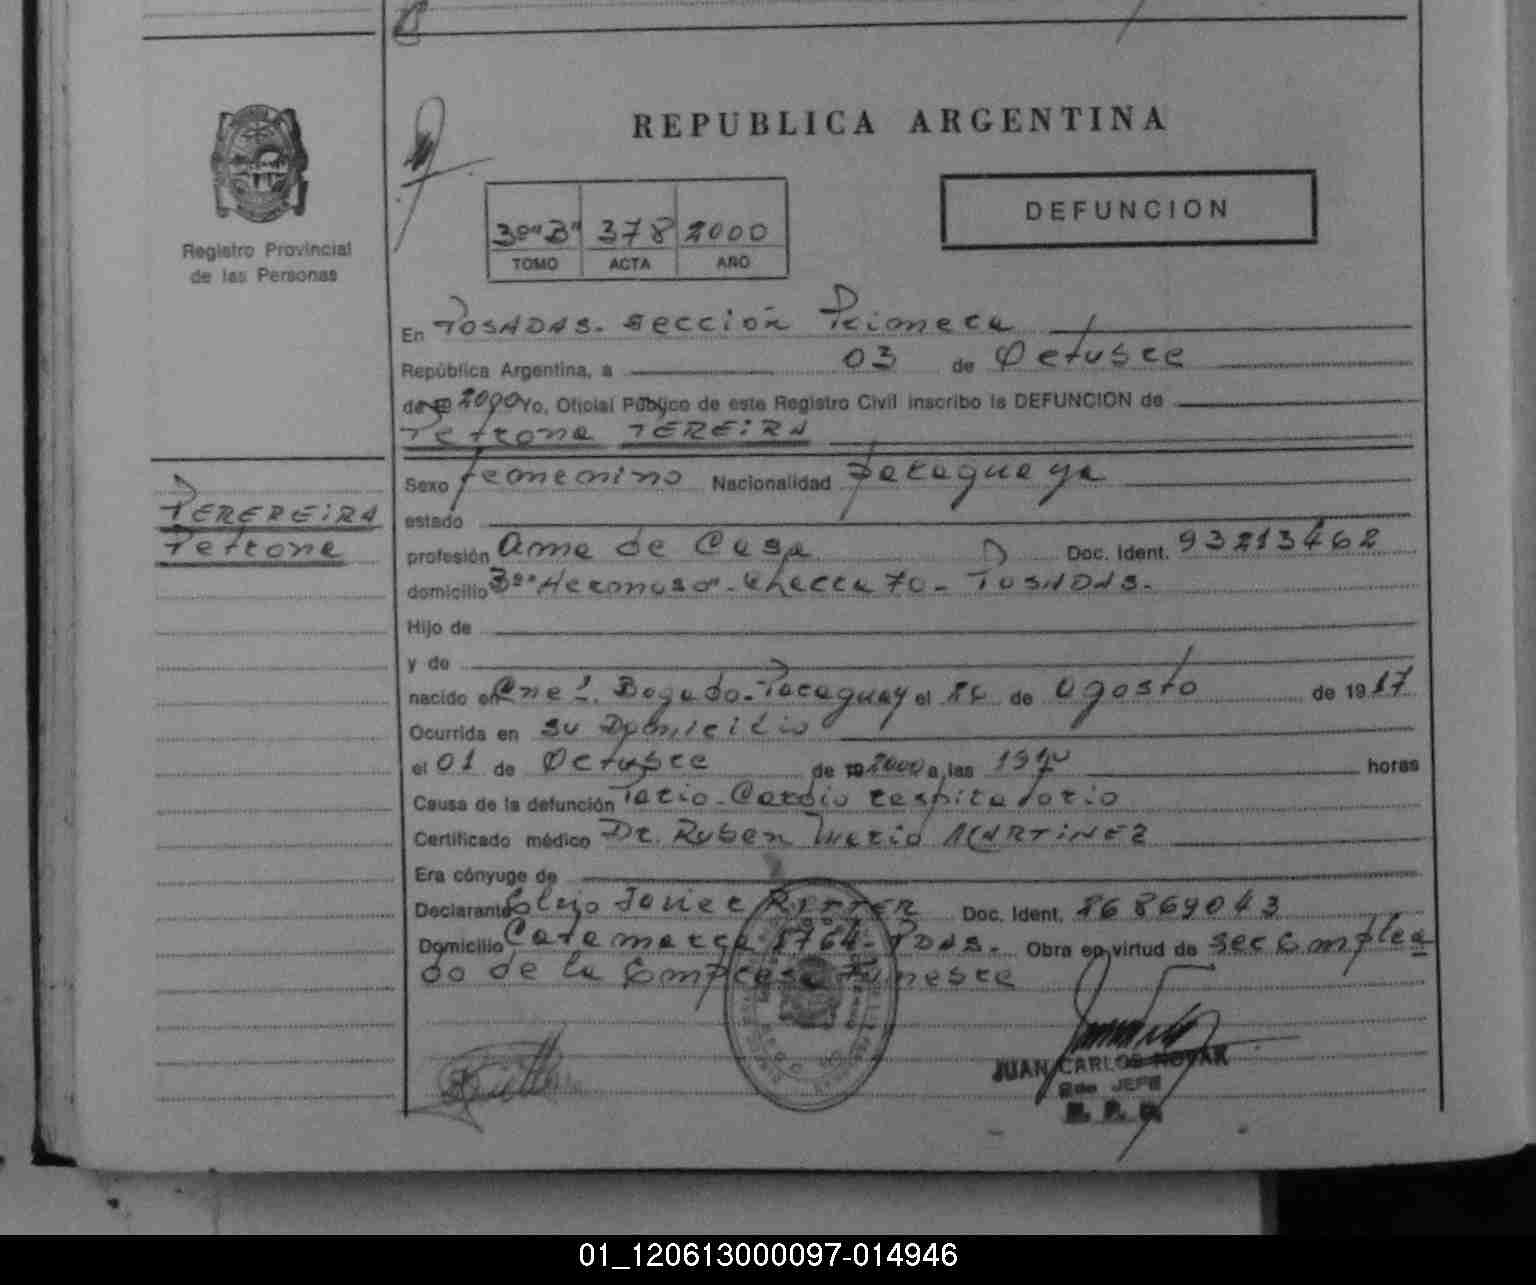 REPUBLICA ARGENTINA
DEFUNCION
Registro Provincial
de las Personas
3º "B" 378 2000
TOMO ACTA AÑO
En POSADAS. Sección Primera
República Argentina, a 03 de Octubre
de 2000 Yo, Oficial Público de este Registro Civil inscribo la DEFUNCION de
Petrona PEREIRA
PEREREIRA
Petrona
Sexo femenino Nacionalidad Paraguaya
estado
profesión Ama de Casa Doc. Ident. 93213462
domicilio Bº "Hermoso" - Chacra 70 - POSADAS.
Hijo de
y de
nacido en Cnel. Bogado - Paraguay el de Agosto de 1917
Ocurrida en su Domicilio
el 01 de Octubre de 2000 a las horas
Causa de la defunción Paro - Cardio respiratorio
Certificado médico Dr. Ruben Mario MARTINEZ
Era cónyuge de
Declarante Javier RITTER Doc. Ident. 26869043
Domicilio Catamarca 1764 - PDAS. Obra en virtud de ser Emplea
do de la Empresa Funebre
JUAN CARLOS NOVAK
2do JEFE
01_120613000097-014946